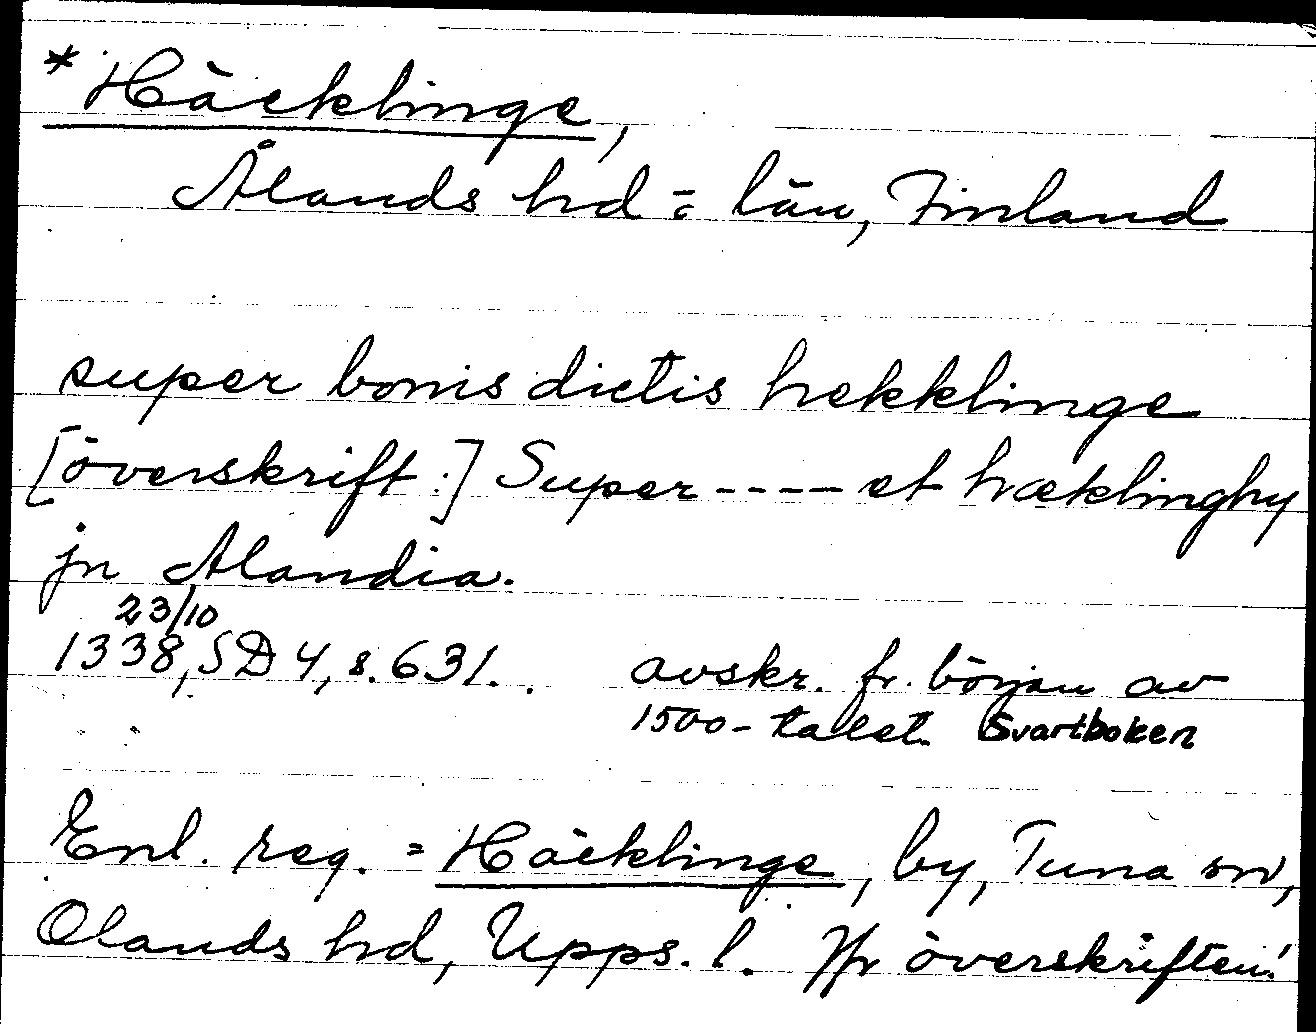 *Häcklinge,
Ålands hd = län, Finland
super bonis dictis hekklinge
[överskrift:] Super ---- et hæklinghy
jn Alandia.
23/10
1338, SD 4, s. 631. avskr. fr. början av
1500-talet. Svartboken
Enl. reg. = Häcklinge, by, Tuna sn,
Olands hd, Upps. l. Jfr överskriften!